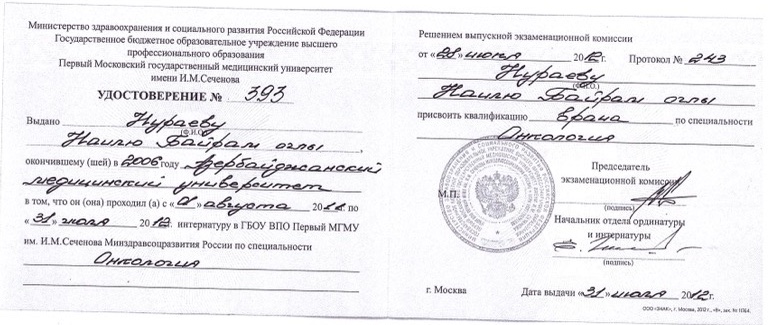 Министерство здравоохранения и социального развития Российской Федерации
Государственное бюджетное образовательное учреждение высшего
профессионального образования
Первый Московский государственный медицинский университет
имени И.М.Сеченова
УДОСТОВЕРЕНИЕ № 393
Выдано Нураеву
(Ф.И.О.)
Наилю Байрам оглы,
окончившему (шей) в 2006 году Азербайджанский
медицинский университет
в том, что он (она) проходил (а) с «01» августа 2011 по
«31» июля 2012 интернатуру в ГБОУ ВПО Первый МГМУ
им. И.М.Сеченова Минздравсоцразвития России по специальности
Онкология
Решением выпускной экзаменационной комиссии
от «28» июня 2012г. Протокол № 243
Нураеву
(Ф.И.О.)
Наилю Байрам оглы
присвоить квалификацию Врача по специальности
Онкология
Председатель
экзаменационной комиссии
М.П.
(подпись)
Начальник отдела ординатуры
и интернатуры
(подпись)
г. Москва Дата выдачи «31» июля 2012г.
ООО «ЗНАК», г. Москва, 2012 г., «В»,